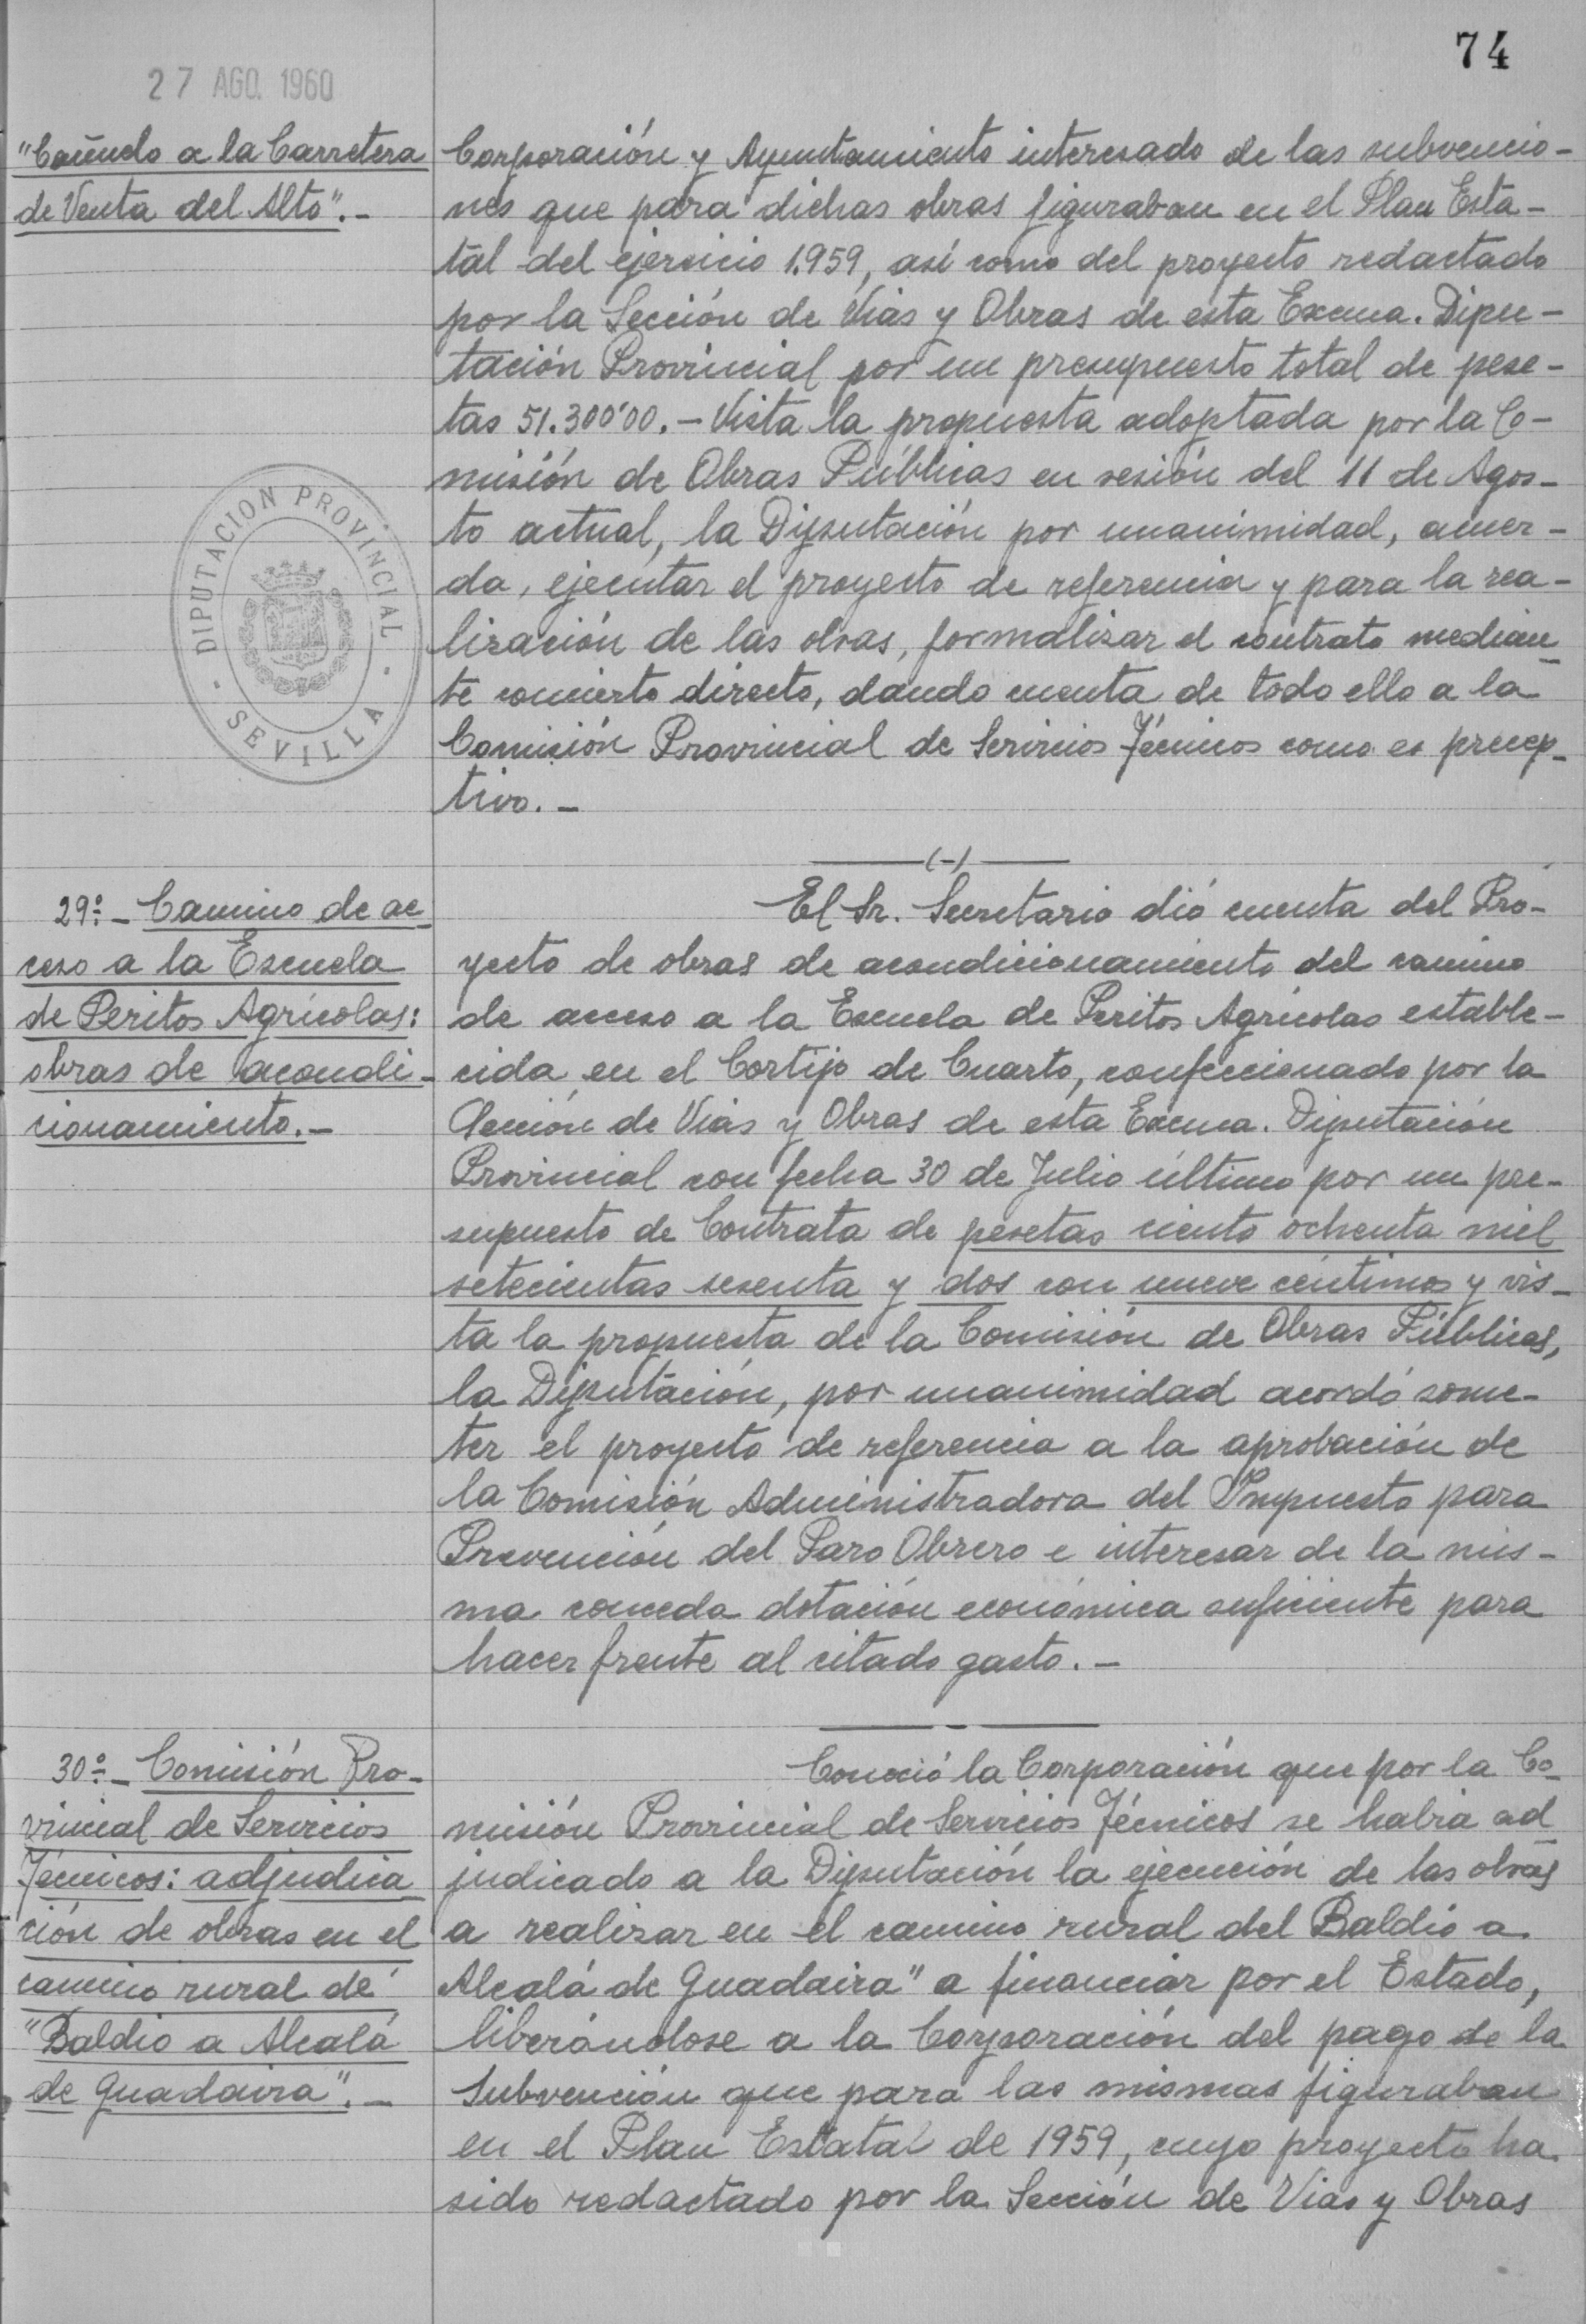 74
27 AGO. 1960
"Cañuelo a la Carretera
de Venta del Alto".-
Corporación y Ayuntamiento interesado de las subvencio-
nes que para dichas obras figuraban en el Plan Esta-
tal del ejercicio 1.959, así como del proyecto redactado
por la Sección de Vías y Obras de esta Excma. Dipu-
tación Provincial por un presupuesto total de pese-
tas 51.300'00.- Vista la propuesta adoptada por la Co-
misión de Obras Públicas en sesión del 11 de Agos-
to actual, la Diputación por unanimidad, acuer-
da, ejecutar el proyecto de referencia y para la rea-
lización de las obras, formalizar el contrato median-
te concierto directo, dando cuenta de todo ello a la
Comisión Provincial de Servicios Técnicos como es precep-
tivo.-
DIPUTACION PROVINCIAL
· SEVILLA ·
(-)
29º.- Camino de ac-
ceso a la Escuela
de Peritos Agrícolas:
obras de acondi-
cionamiento.-
El Sr. Secretario dió cuenta del Pro-
yecto de obras de acondicionamiento del camino
de acceso a la Escuela de Peritos Agrícolas estable-
cida en el Cortijo de Cuarto, confeccionado por la
Sección de Vías y Obras de esta Excma. Diputación
Provincial con fecha 30 de Julio último por un pre-
supuesto de Contrata de pesetas ciento ochenta mil
setecientas sesenta y dos con nueve céntimos y vis-
ta la propuesta de la Comisión de Obras Públicas,
la Diputación, por unanimidad acordó some-
ter el proyecto de referencia a la aprobación de
la Comisión Administradora del Impuesto para
Prevención del Paro Obrero e interesar de la mis-
ma conceda dotación económica suficiente para
hacer frente al citado gasto.-
30º.- Comisión Pro-
vincial de Servicios
Técnicos: adjudica
ción de obras en el
camino rural de
"Baldío a Alcalá
de Guadaira".-
Conoció la Corporación que por la Co-
misión Provincial de Servicios Técnicos se había ad-
judicado a la Diputación la ejecución de las obras
a realizar en el camino rural del Baldío a
Alcalá de Guadaira" a financiar por el Estado,
liberándose a la Corporación del pago de la
Subvención que para las mismas figuraban
en el Plan Estatal de 1959, cuyo proyecto ha
sido redactado por la Sección de Vías y Obras